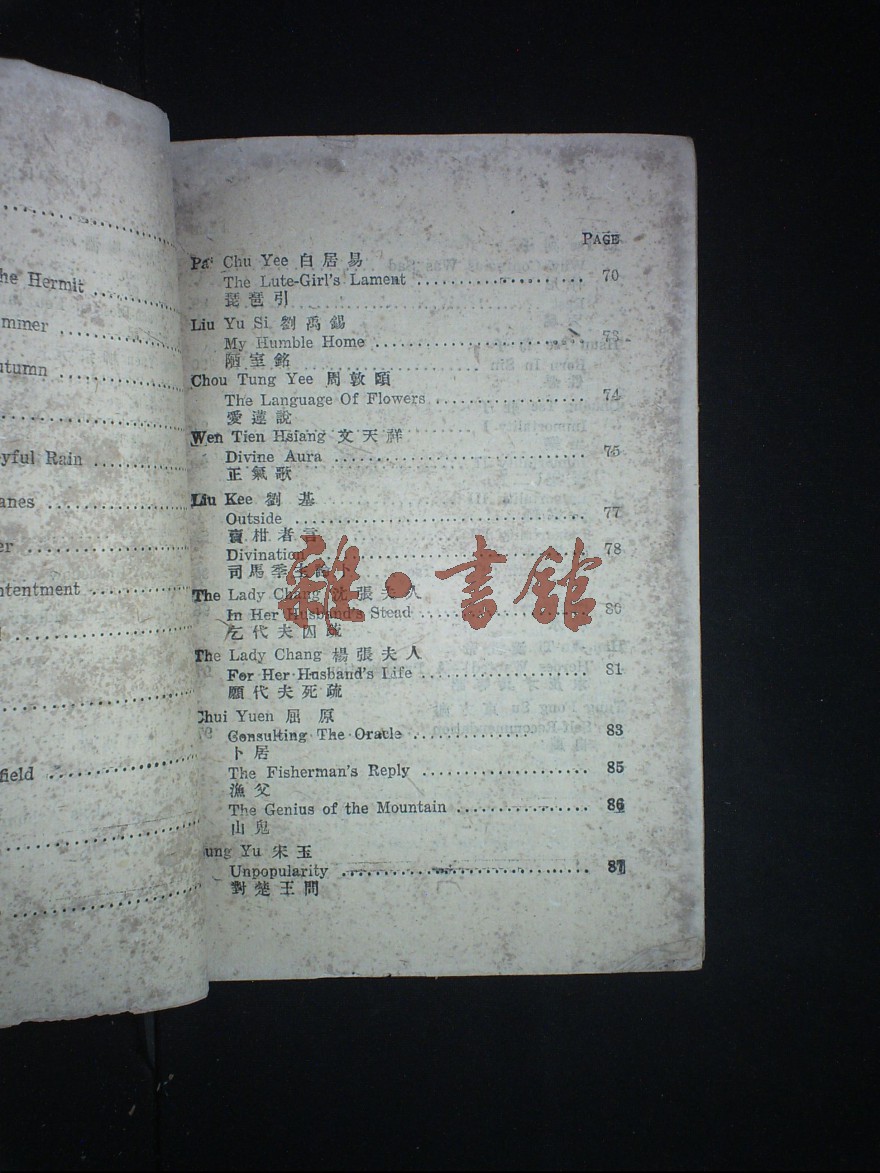 he Hermit
mmer
utumn
yful Rain
anes
er
ntentment
field
PAGE
Pa' Chu Yee 白居易
The Lute-Girl's Lament ........................ 70
琵琶引
Liu Yu Si 劉禹錫
My Humble Home ........................ 73
陋室銘
Chou Tung Yee 周敦頤
The Language Of Flowers ........................ 74
愛蓮說
Wen Tien Hsiang 文天祥
Divine Aura ........................ 75
正氣歌
Liu Kee 劉基
Outside ........................ 77
賣柑者言
Divination ........................ 78
司馬季主論卜
The Lady Chang 沈張夫人
In Her Husband's Stead ........................ 80
乞代夫囚疏
The Lady Chang 楊張夫人
For Her Husband's Life ........................ 81
願代夫死疏
Chui Yuen 屈原
Consulting The Oracle ........................ 83
卜居
The Fisherman's Reply ........................ 85
漁父
The Genius of the Mountain ........................ 86
山鬼
ung Yu 宋玉
Unpopularity ........................ 87
對楚王問
雜·書館